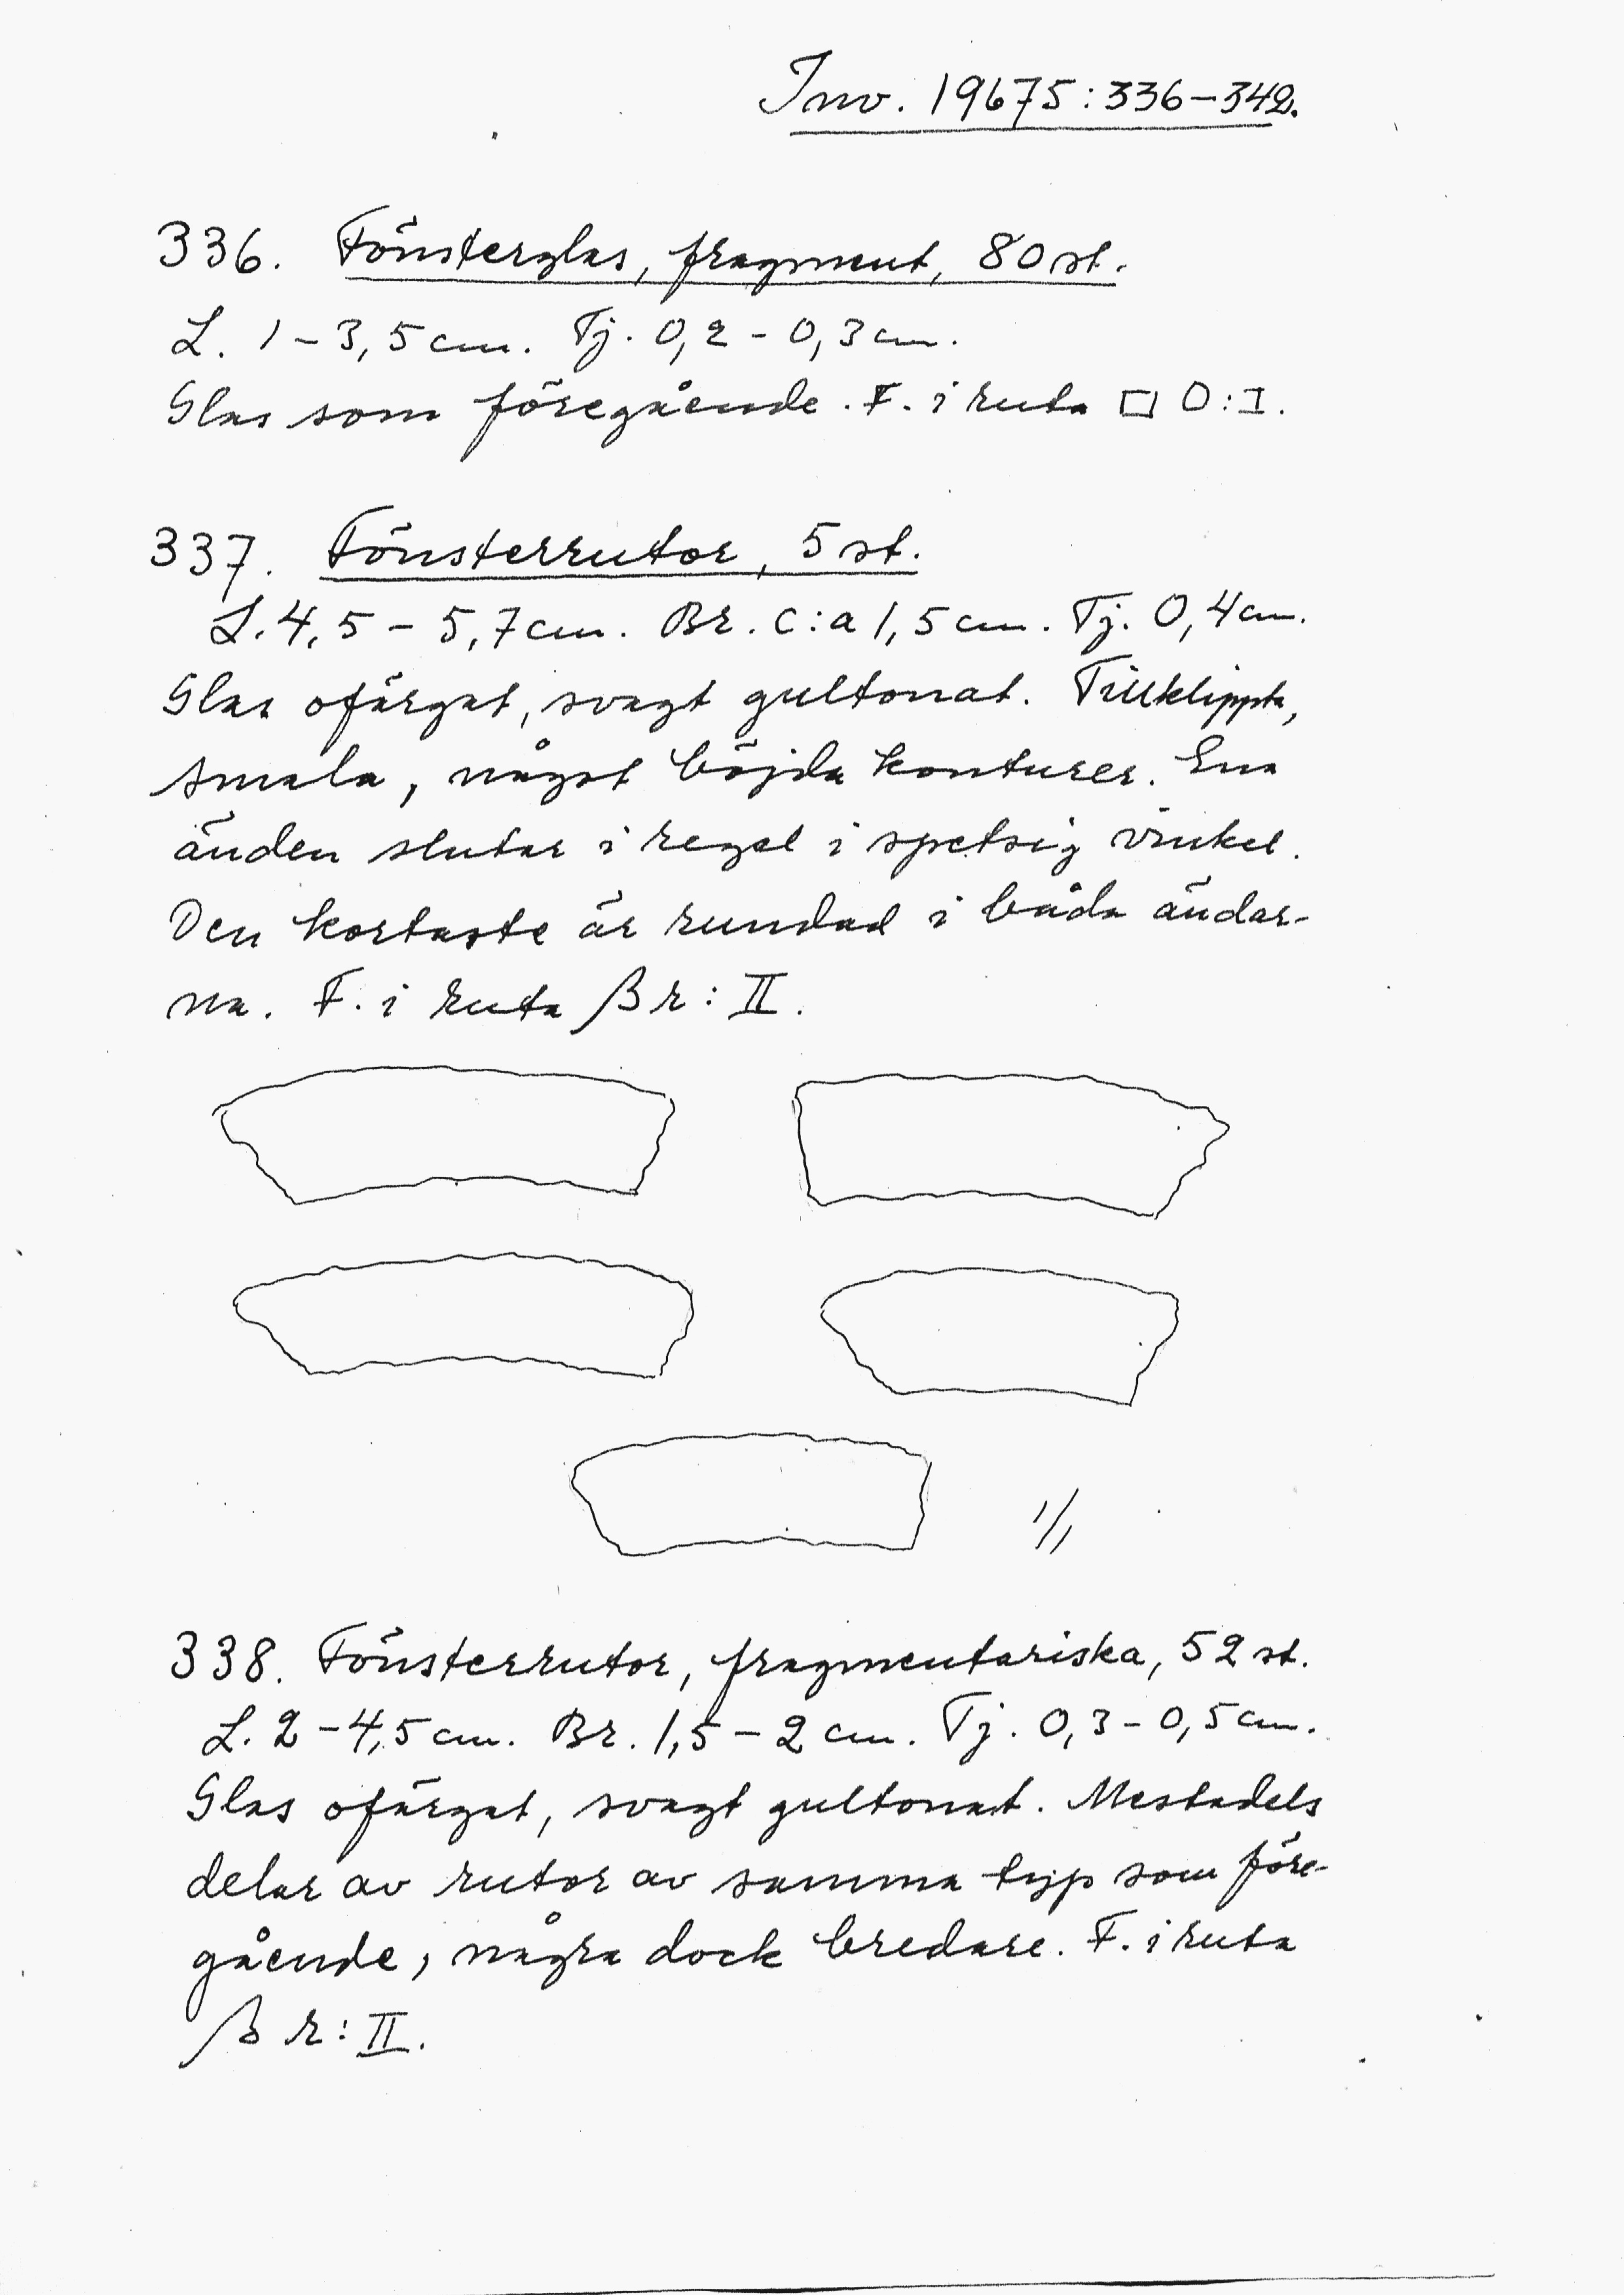 Inv. 19675:336-342.
336. Fönsterglas, fragment, 80 st.
L. 1-3,5 cm. Tj. 0,2-0,3 cm.
Glas som föregående. F. i ruta □ O:I.
337. Fönsterrutor, 5 st.
L. 4,5-5,7 cm. Br. c:a 1,5 cm. Tj. 0,4 cm.
Glas ofärgat, svagt gultonat. Tillklippta,
smala, något böjda konturer. Ena
änden slutar i regel i spetsig vinkel.
Den kortaste är rundad i båda ändar-
na. F. i ruta β r:II.
1/1
338. Fönsterrutor, fragmentariska, 52 st.
L. 2-4,5 cm. Br. 1,5-2 cm. Tj. 0,3-0,5 cm.
Glas ofärgat, svagt gultonat. Mestadels
delar av rutor av samma typ som före-
gående, några dock bredare. F. i ruta
β r:II.